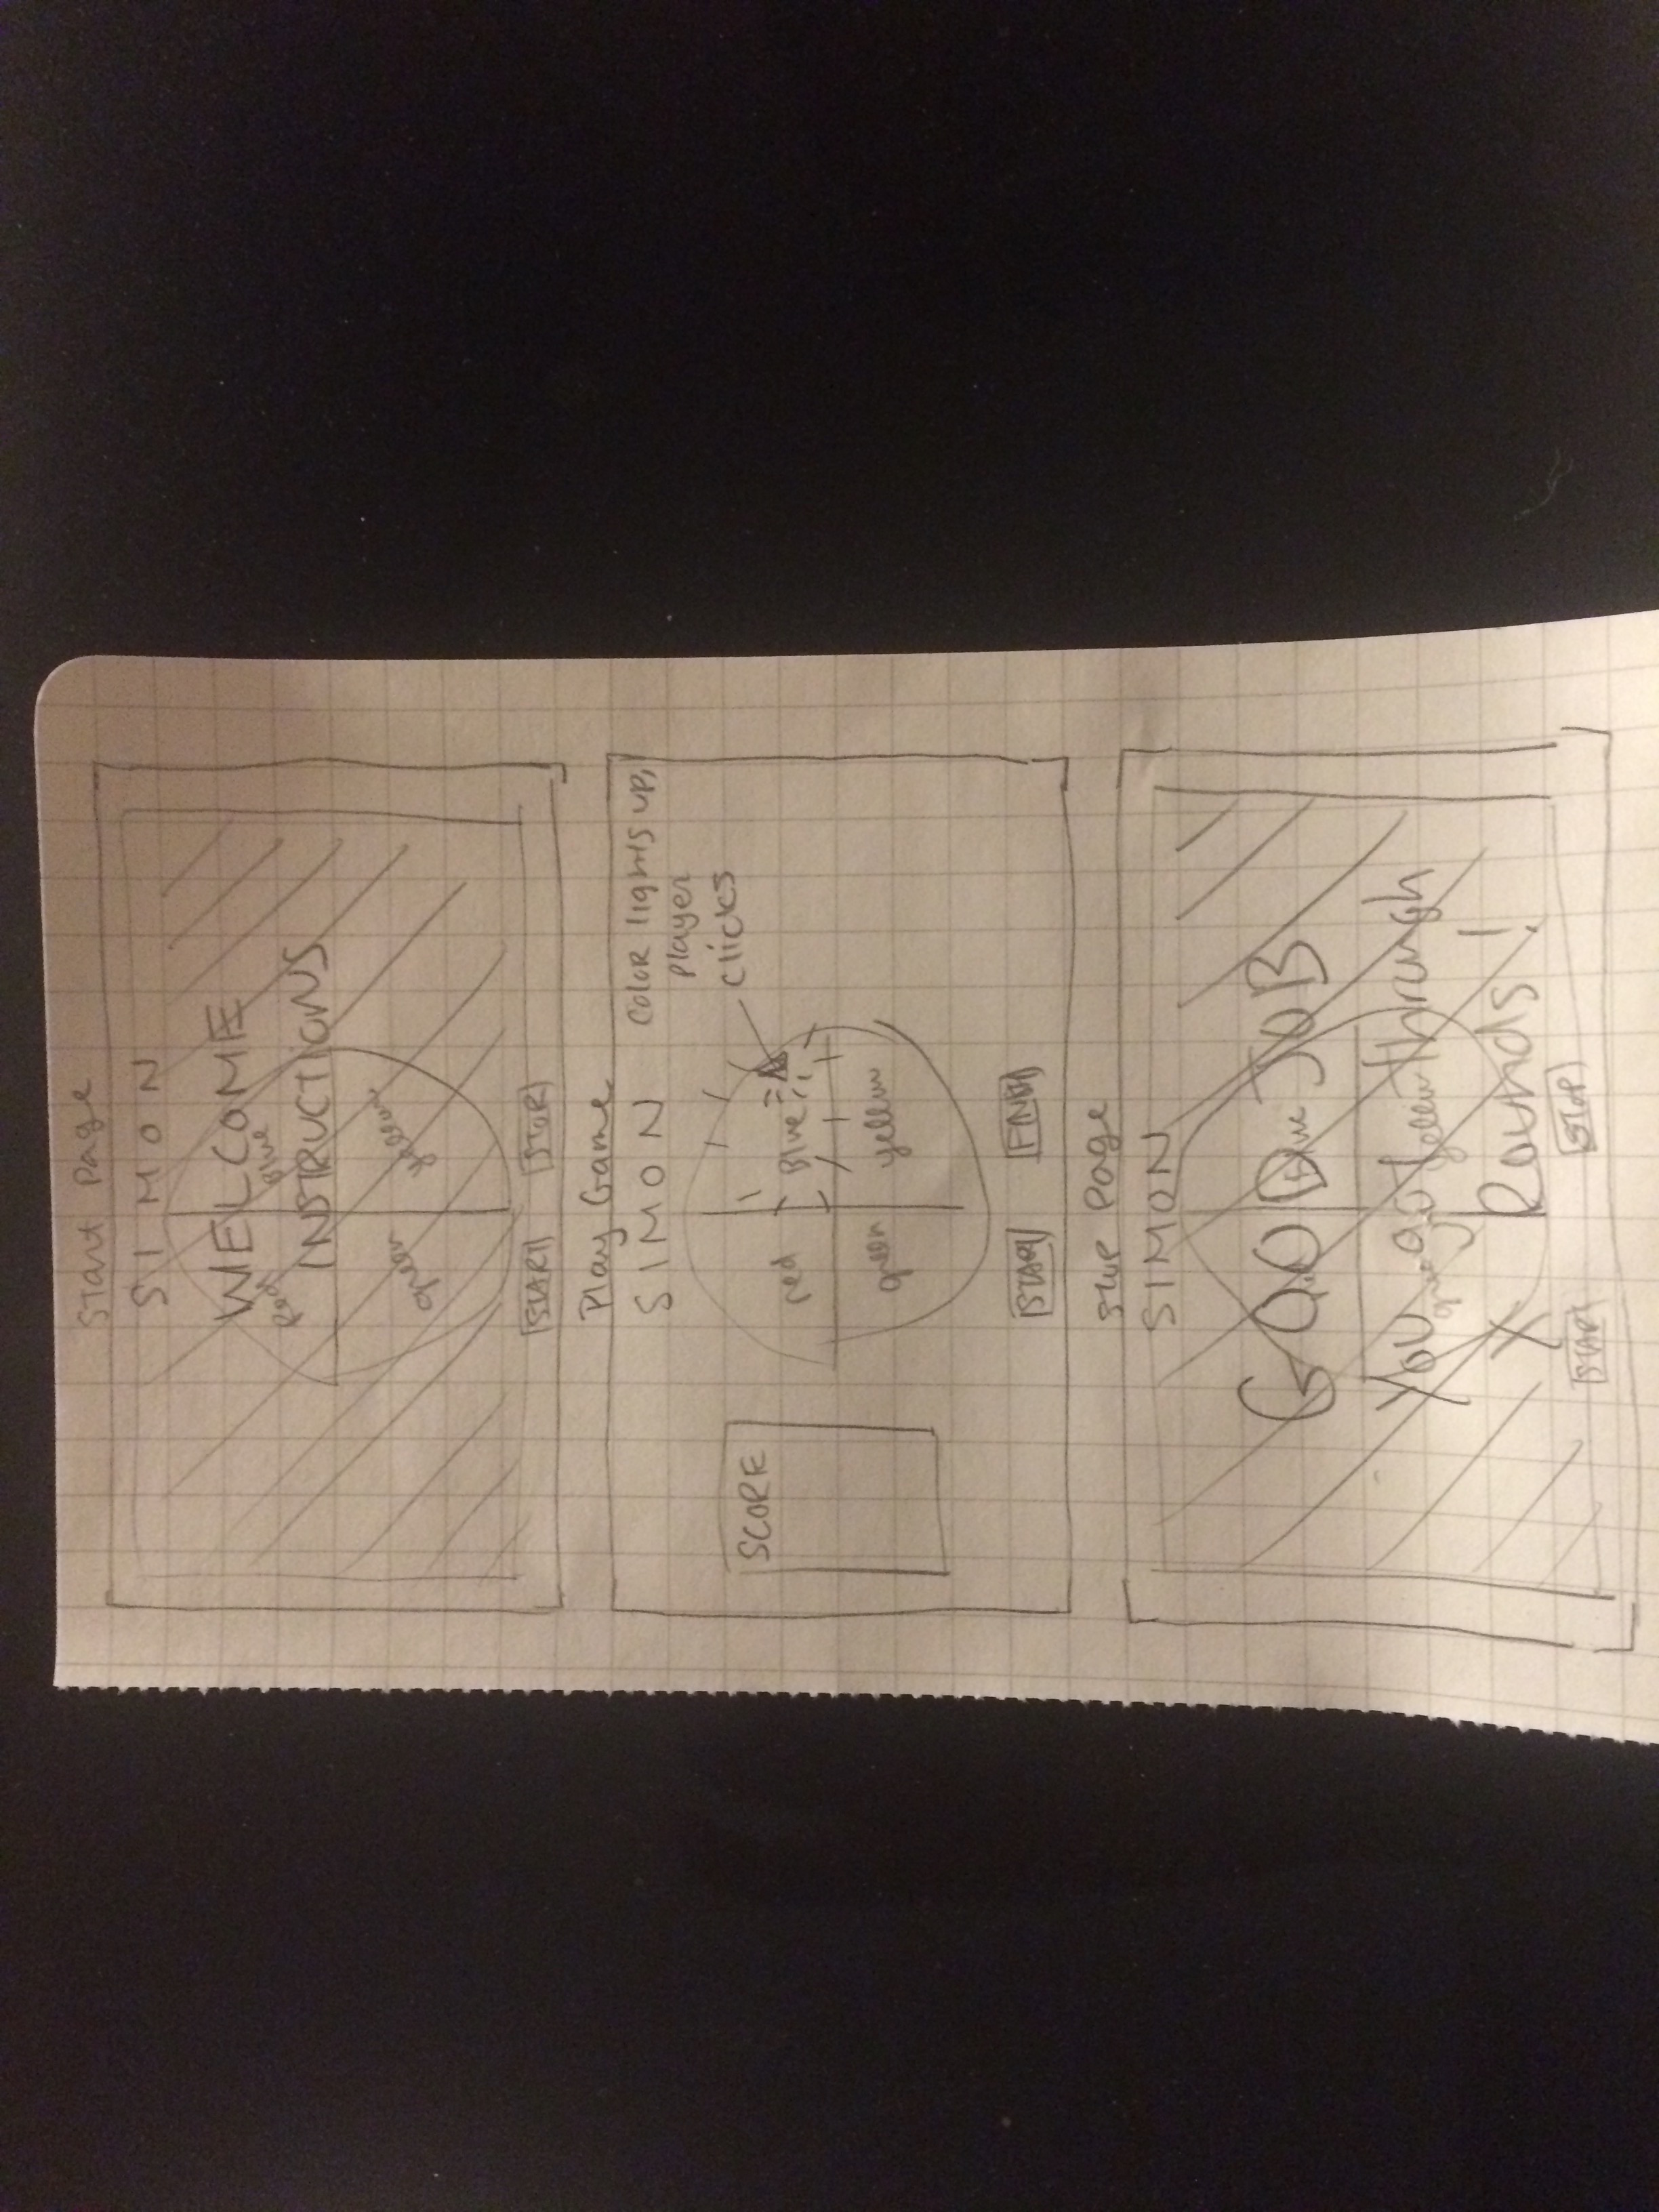 Start Page
SIMON
WELCOME
INSTRUCTIONS
Red Blue
green yellow
START STOP
Play Game
SIMON
Color lights up,
player
clicks
SCORE
red Blue
green yellow
START END
Stop Page
SIMON
GOOD JOB
Blue
You got through
green yellow
X Rounds!
START STOP